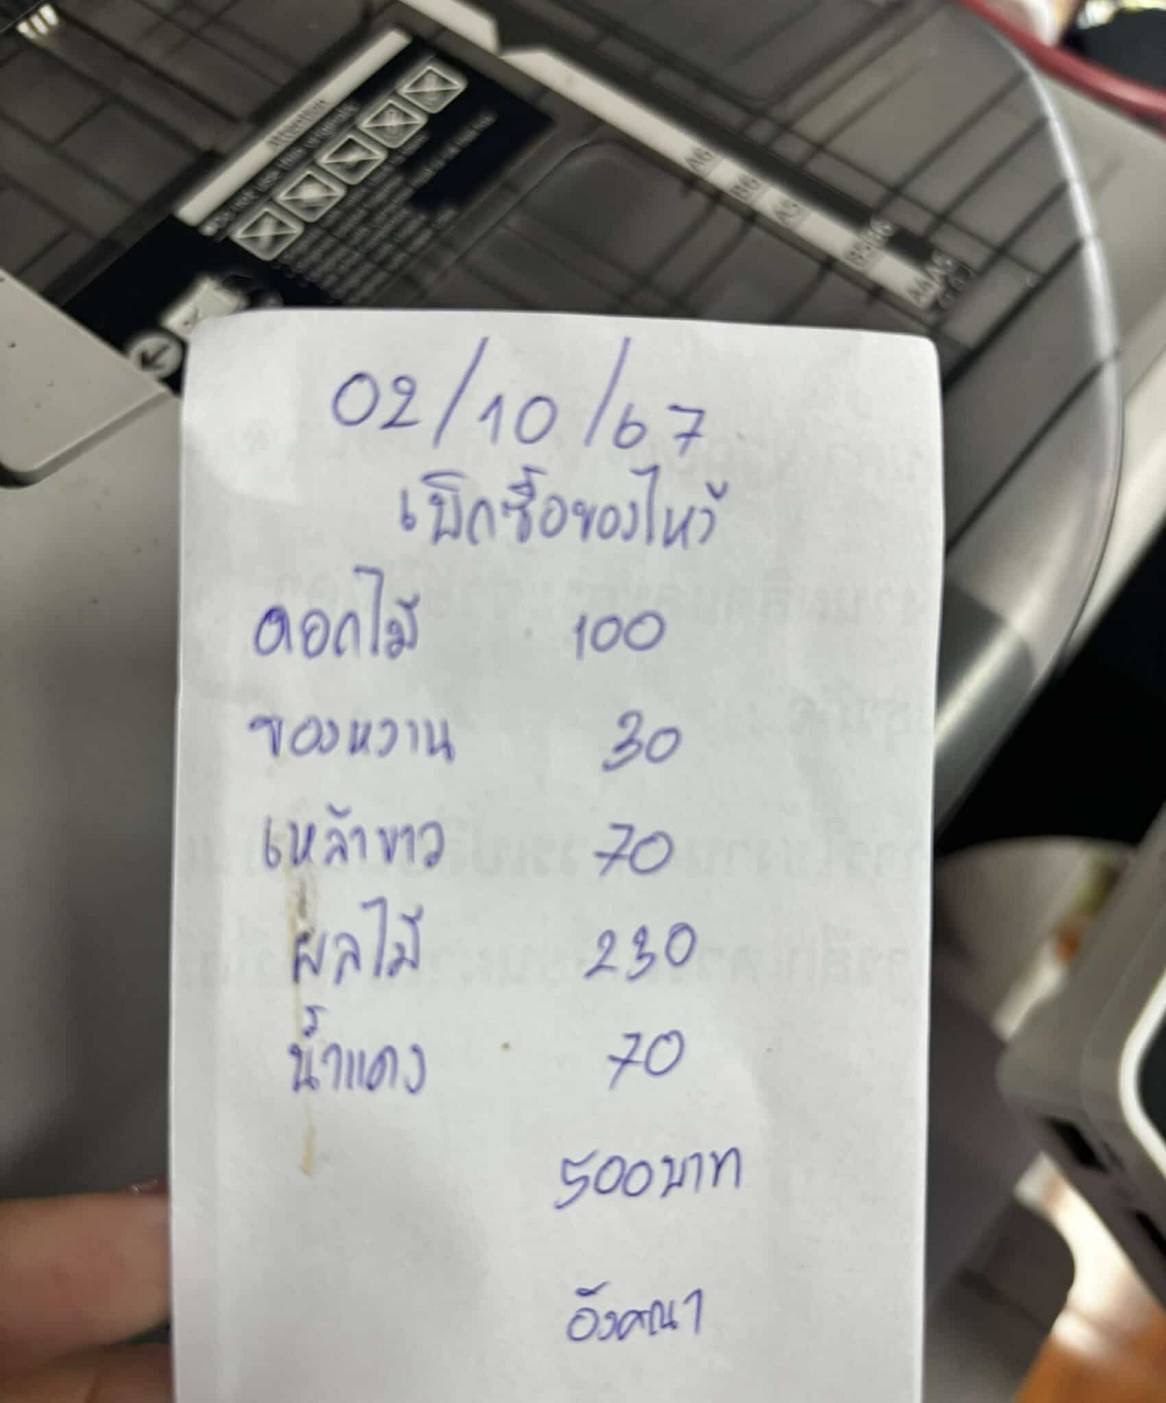 Attention
A6
B6
A5
02/10/67
เบิกซื้อของไหว้
ดอกไม้ 100
ของหวาน 30
เหล้าขาว 70
ผลไม้ 230
น้ำแดง 70
500บาท
อังคณา